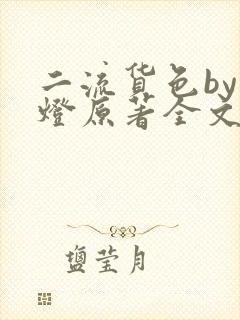 二流货色by
燈原著全文
盬莹月